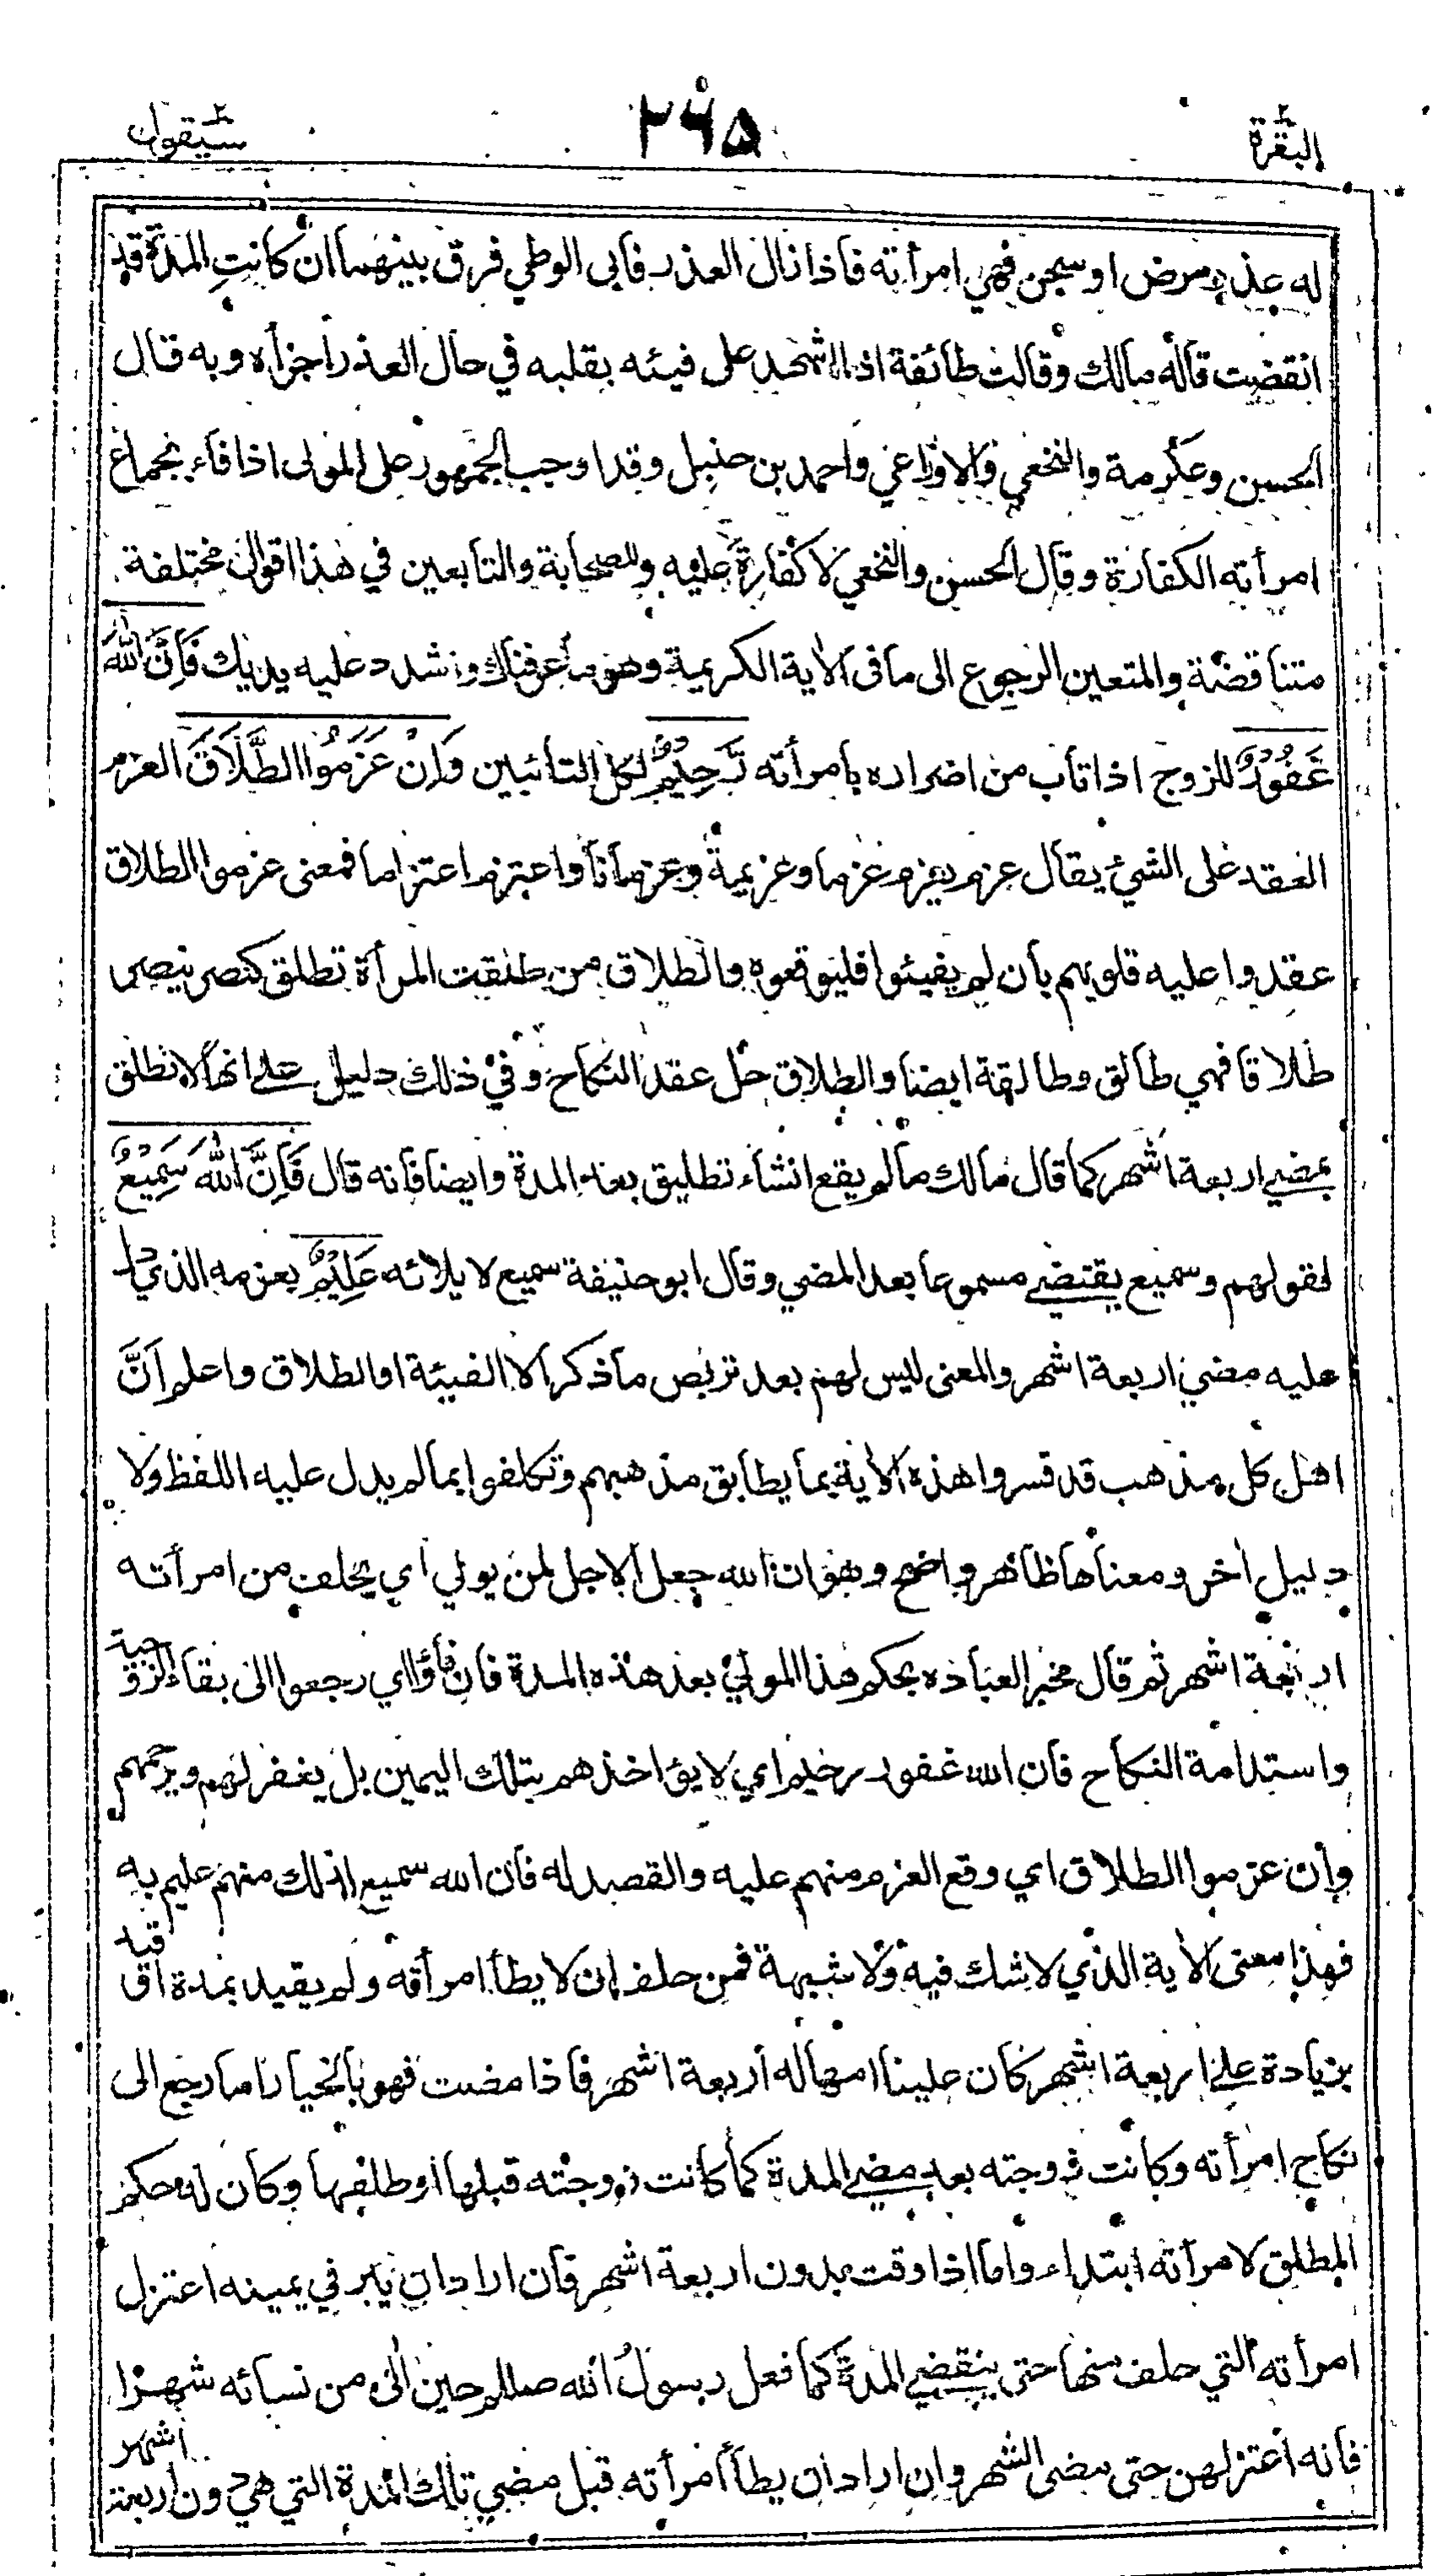 البقرة ٢
٢٦٥
سيقول ٢
له عذر مرض او سجن فهي امرأته فاذا زال العذر فابى الوطي فرق بينهما ان كانت المدة قد
انقضت قاله مالك وقالت طائفة اذا اشهد على فيئه بقلبه في حال العذر اجزأه وبه قال
الحسن وعكرمة والنخعي والاوزاعي واحمد بن حنبل وقد اوجب الجمهور على المولى اذا فاء بجماع
امرأته الكفارة وقال الحسن والنخعي لا كفارة عليه وللصحابة والتابعين في هذا اقوال مختلفة
متناقضة والمتعين الرجوع الى ما في الاية الكريمة وهو ما عرفناك واشدد عليه يديك فَاِنَّ اللّٰهَ
غَفُوْرٌ للزوج اذا تاب من اضراره بامرأته رَّحِيْمٌ لكل التائبين وَاِنْ عَزَمُوا الطَّلَاقَ العزم
العقد على الشيء يقال عزم يعزم عزما وعزيمة وعزمانا واعتزم اعتزاما فمعنى عزموا الطلاق
عقدوا عليه قلوبهم بأن لم يفيئوا فليوقعوه والطلاق من طلقت المرأة تطلق كنصر ينصر
طلاقا فهي طالق وطالقة ايضا والطلاق حل عقد النكاح وفي ذلك دليل على انها لا تطلق
بمضي اربعة اشهر كما قال مالك ما لم يقع انشاء تطليق بعد المدة وايضا فانه قال فَاِنَّ اللّٰهَ سَمِيْعٌ
لقولهم وسميع يقتضي مسموعا بعد المضي وقال ابو حنيفة سميع لايلائه عَلِيْمٌ بعزمه الذي دل
عليه مضي اربعة اشهر والمعنى ليس لهم بعد تربص ما ذكر الا الفيئة او الطلاق واعلم اَنَّ
اهل كل مذهب قد فسروا هذه الاية بما يطابق مذهبهم وتكلفوا بما لم يدل عليه اللفظ ولا
دليل اخر ومعناها ظاهر واضح وهو ان الله جعل الاجل لمن يولي اي يحلف من امرأته
اربعة اشهر ثم قال مخبرا لعباده بحكم هذا المولي بعد هذه المدة فان فاؤا اي رجعوا الى بقاء الزوجية
واستدامة النكاح فان الله غفور رحيم اي لا يؤاخذهم بتلك اليمين بل يغفر لهم ويرحمهم
وان عزموا الطلاق اي وقع العزم منهم عليه والقصد له فان الله سميع لذلك منهم عليم به
فهذا معنى الاية الذي لا شك فيه ولا شبهة فمن حلف ان لا يطأ امرأته ولم يقيد بمدة او قيد
بزيادة على اربعة اشهر كان علينا امهاله اربعة اشهر فاذا مضت فهو بالخيار اما رجع الى
نكاح امرأته وكانت زوجته بعد مضي المدة كما كانت زوجته قبلها او طلقها وكان له حكم
المطلق لامرأته ابتداء واما اذا وقت بدون اربعة اشهر فان اراد ان يبر في يمينه اعتزل
امرأته التي حلف منها حتى ينقضي المدة كما فعل رسول الله صللم حين الى من نسائه شهرا
فانه اعتزلهن حتى مضى الشهر وان اراد ان يطأ امرأته قبل مضي تلك المدة التي هي دون اربعة اشهر